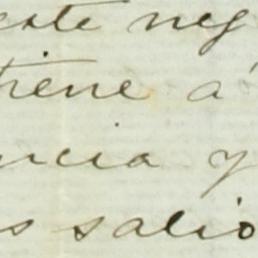 este neg
tiene á
ncia y
s salio